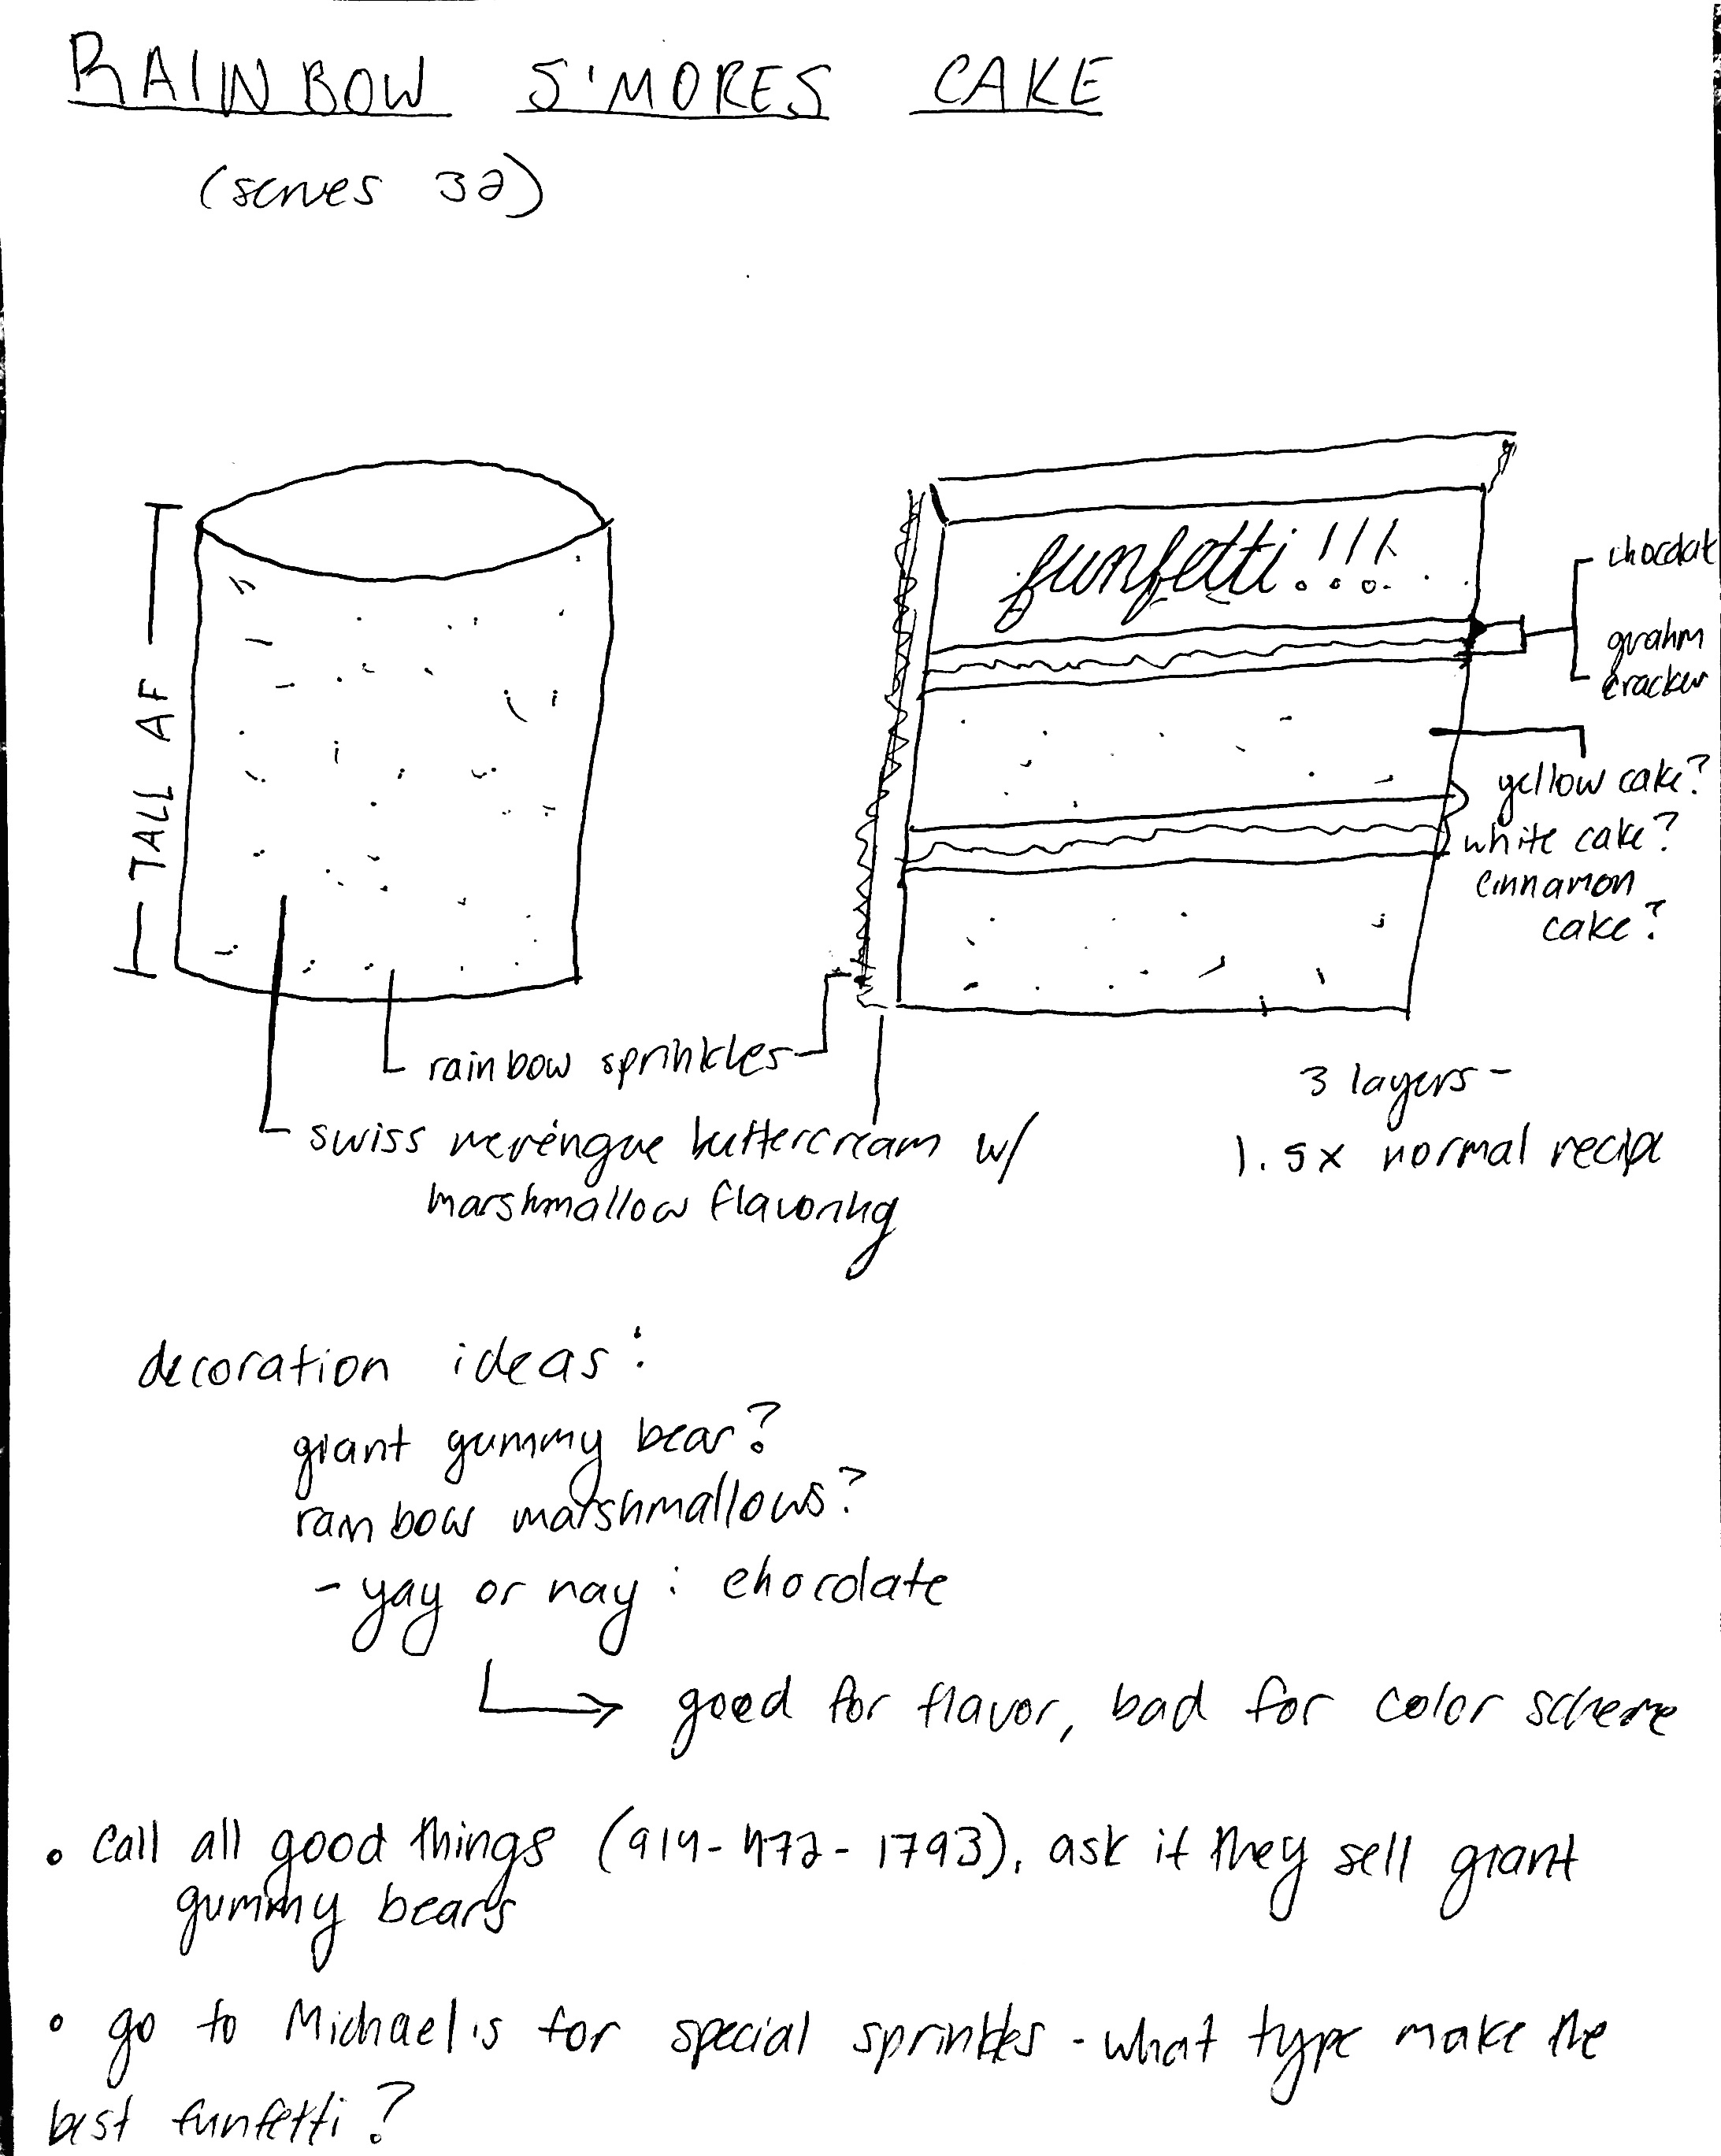 RAINBOW S'MORES CAKE
(serves 32)
TALL AF
funfetti!!!
chocolate
grahm
cracker
yellow cake?
white cake?
cinnamon
cake?
rainbow sprinkles
swiss merengue buttercream w/
marshmallow flavoring
3 layers -
1.5x normal recipe
decoration ideas:
giant gummy bear?
rainbow marshmallows?
- yay or nay: chocolate
good for flavor, bad for color scheme
• call all good things (914-472-1793), ask if they sell giant
gummy bears
• go to Michael's for special sprinkles - what type make the
best funfetti?